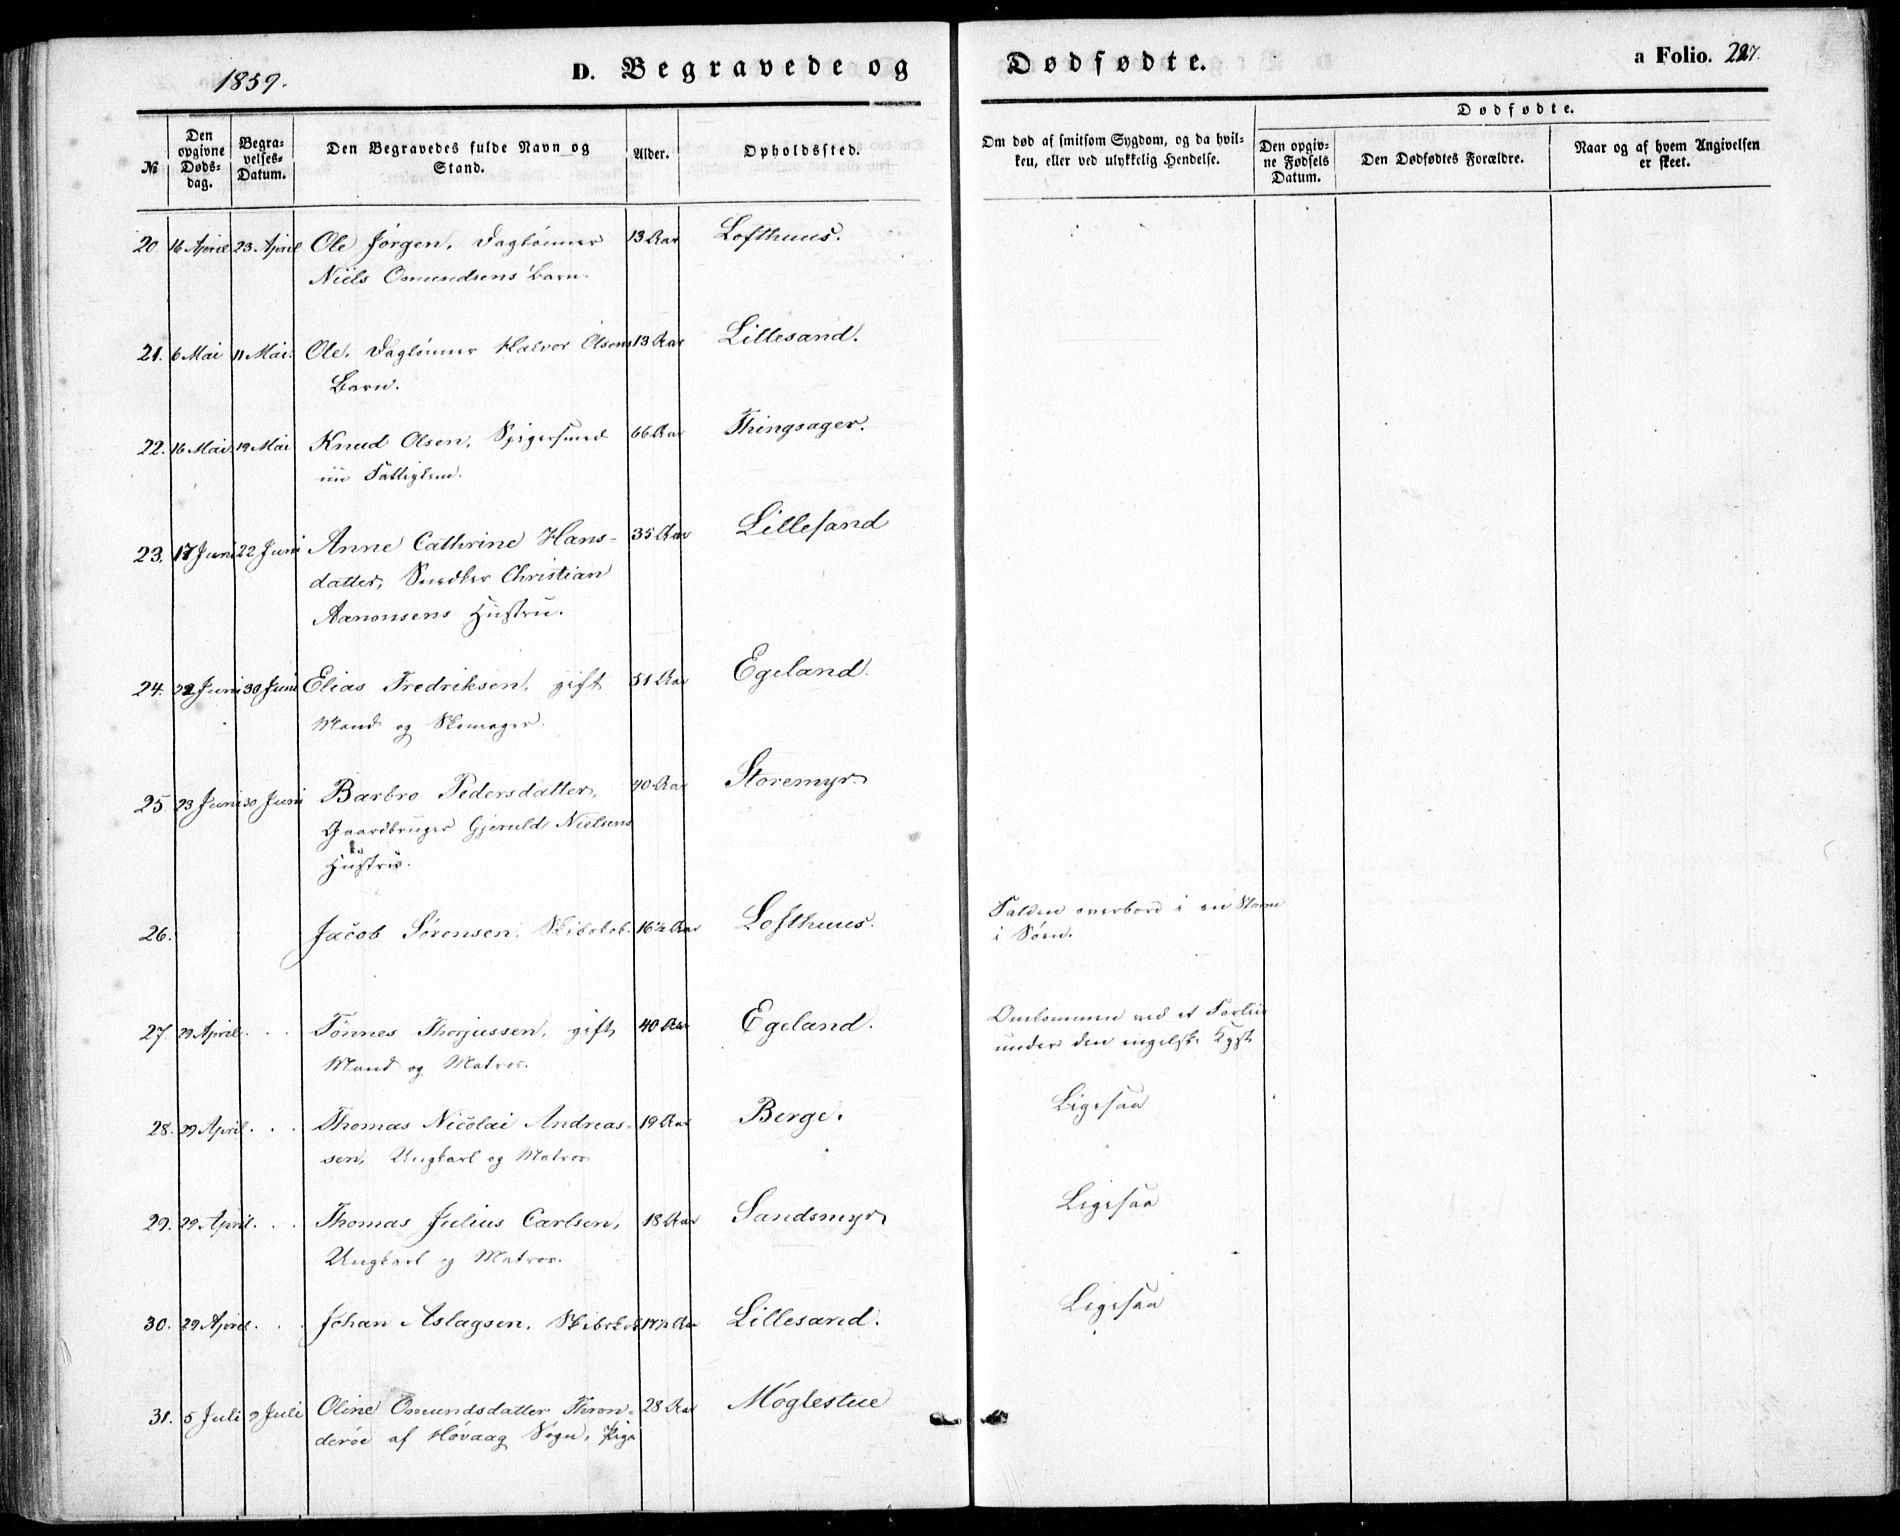 1859.
D. Begravede og
Dødfødte.
a Folio. 227.
№
Den opgivne Døds-dag.
Begra-velses-Datum.
Den Begravedes fulde Navn og Stand.
Alder.
Opholdssted.
Om død af smitsom Sygdom, og da hvil-ken, eller ved ulykkelig Hendelse.
Dødfødte.
Den opgiv-ne Fødsels Datum.
Den Dødfødtes Forældre.
Naar og af hvem Angivelsen er skeet.
20. 16 April 23. April Ole Jørgen, Daglønner 13 Aar Lofthuus.
Niels Osmundsens Barn.
21. 6 Mai 11 Mai. Ole, Daglønner Halvor Olsens 13 Aar Lillesand.
Barn.
22. 16 Mai 19 Mai Knud Olsen, 66 Aar Thingsager.
Fattiglem.
23. 17 Juni 22 Juni Anne Cathrine Hans- 35 Aar Lillesand
datter, Snedker Christian
Aanonsens Hustru.
24. 22 Juni 30 Juni Elias Fredriksen, gift 51 Aar Egeland.
Mand og Skomager.
25. 23 Juni 30 Juni Barbro Pedersdatter, 40 Aar Storemyr.
Gaardbruger Gjeruld Nielsens
Hustru.
26. Jacob Sørensen, Skibskok. 16½ Aar Lofthuus. Falden overbord i en Storm
i Søen.
27. 29 April . . Tønnes Thorjussen, gift 40 Aar Egeland. Omkommen ved et Forliis
Mand og Matros. under den engelske Kyst
28. 29 April . . Thomas Nicolai Andreas- 19 Aar Berge. Ligesaa
sen, Ungkarl og Matros
29. 29 April . . Thomas Julius Carlsen, 18 Aar Sandsmyr Ligesaa
Ungkarl og Matros.
30. 29 April . . Johan Aslagsen, Skibskok 17½ Aar Lillesand. Ligesaa
31. 5 Juli 9 Juli Oline Omundsdatter Thron- 28 Aar Møglestue
derøe af Høvaag Sogn, Pige